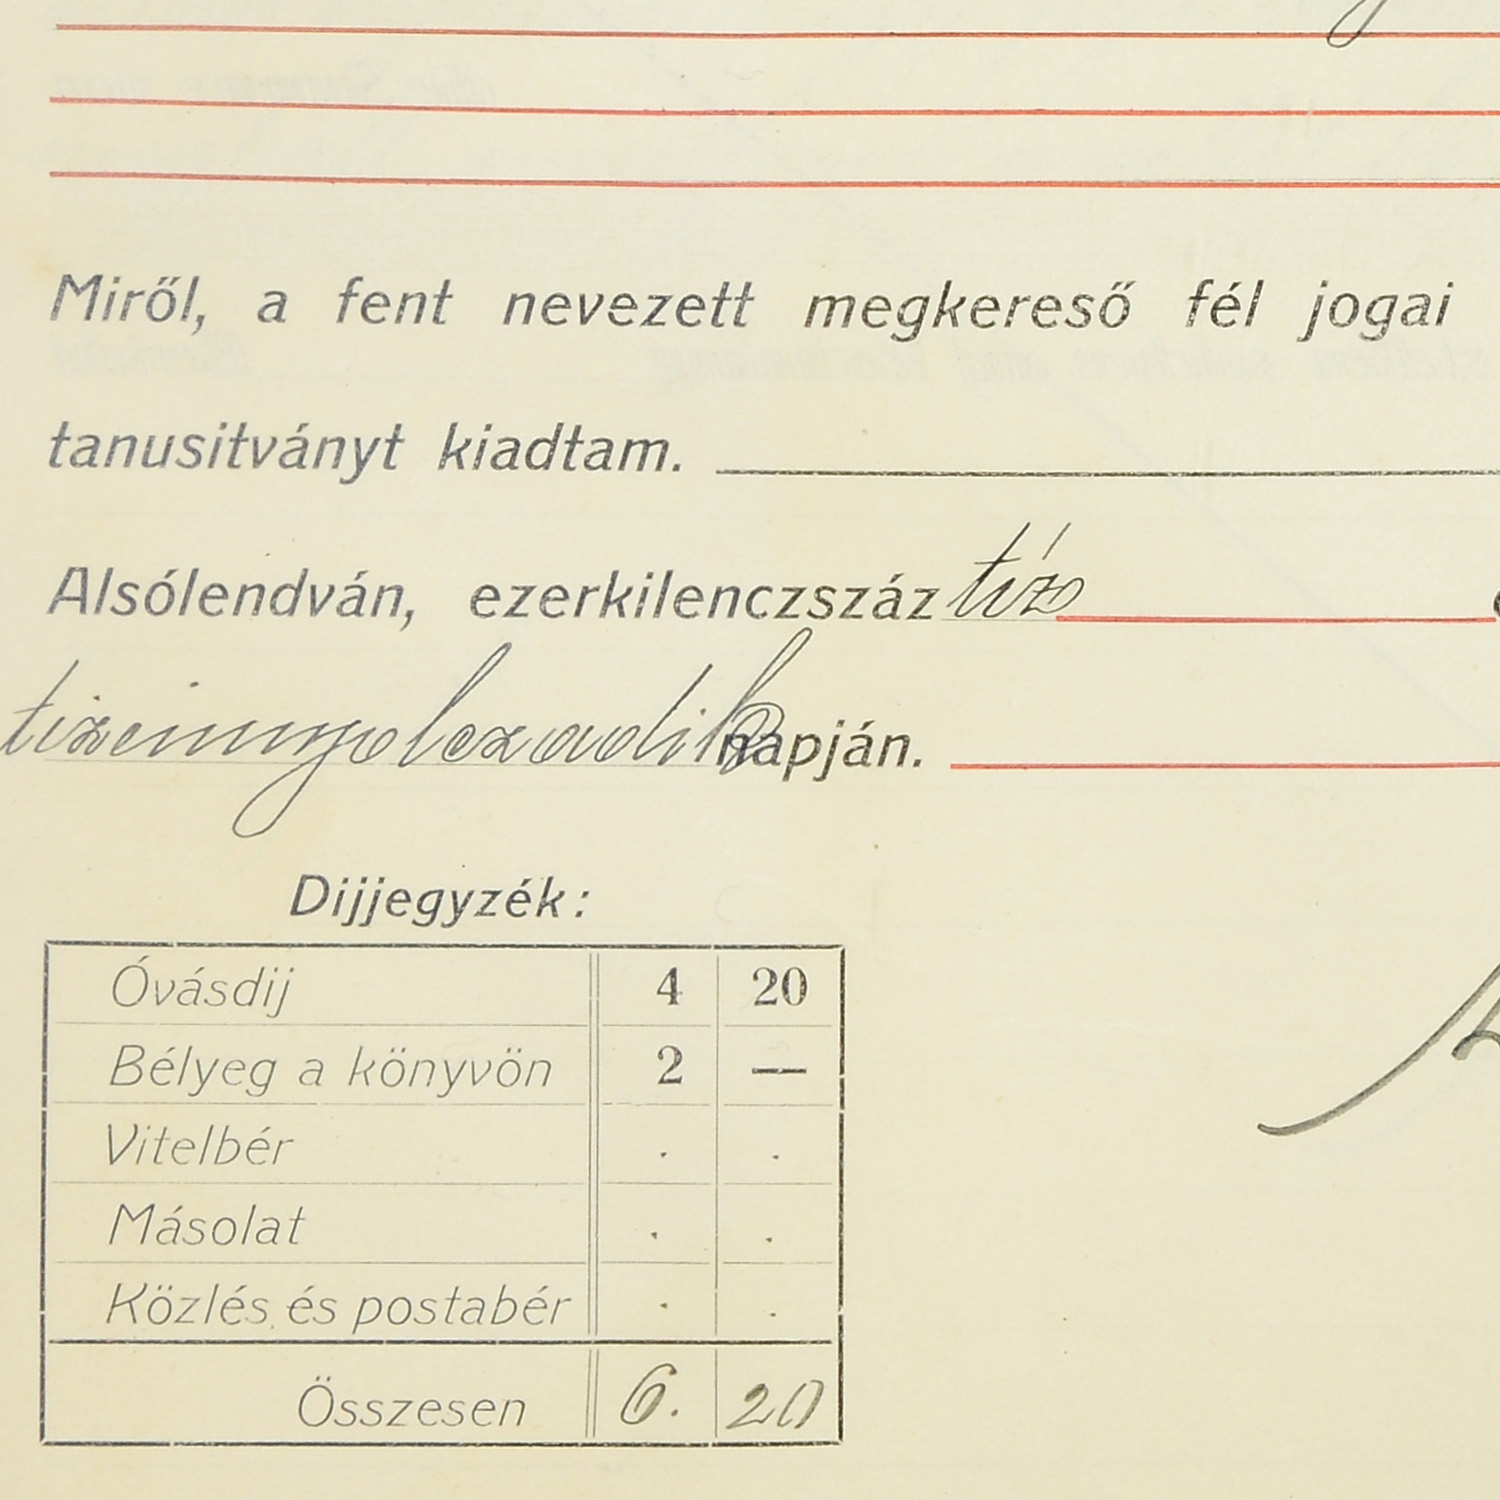 Miről, a fent nevezett megkereső fél jogai
tanusitványt kiadtam.
Alsólendván, ezerkilenczszáz tíz
tizennyolczadik napján.
Dijjegyzék:
Óvásdij 4 20
Bélyeg a könyvön 2 —
Vitelbér . .
Másolat . .
Közlés és postabér . .
Összesen 6. 20